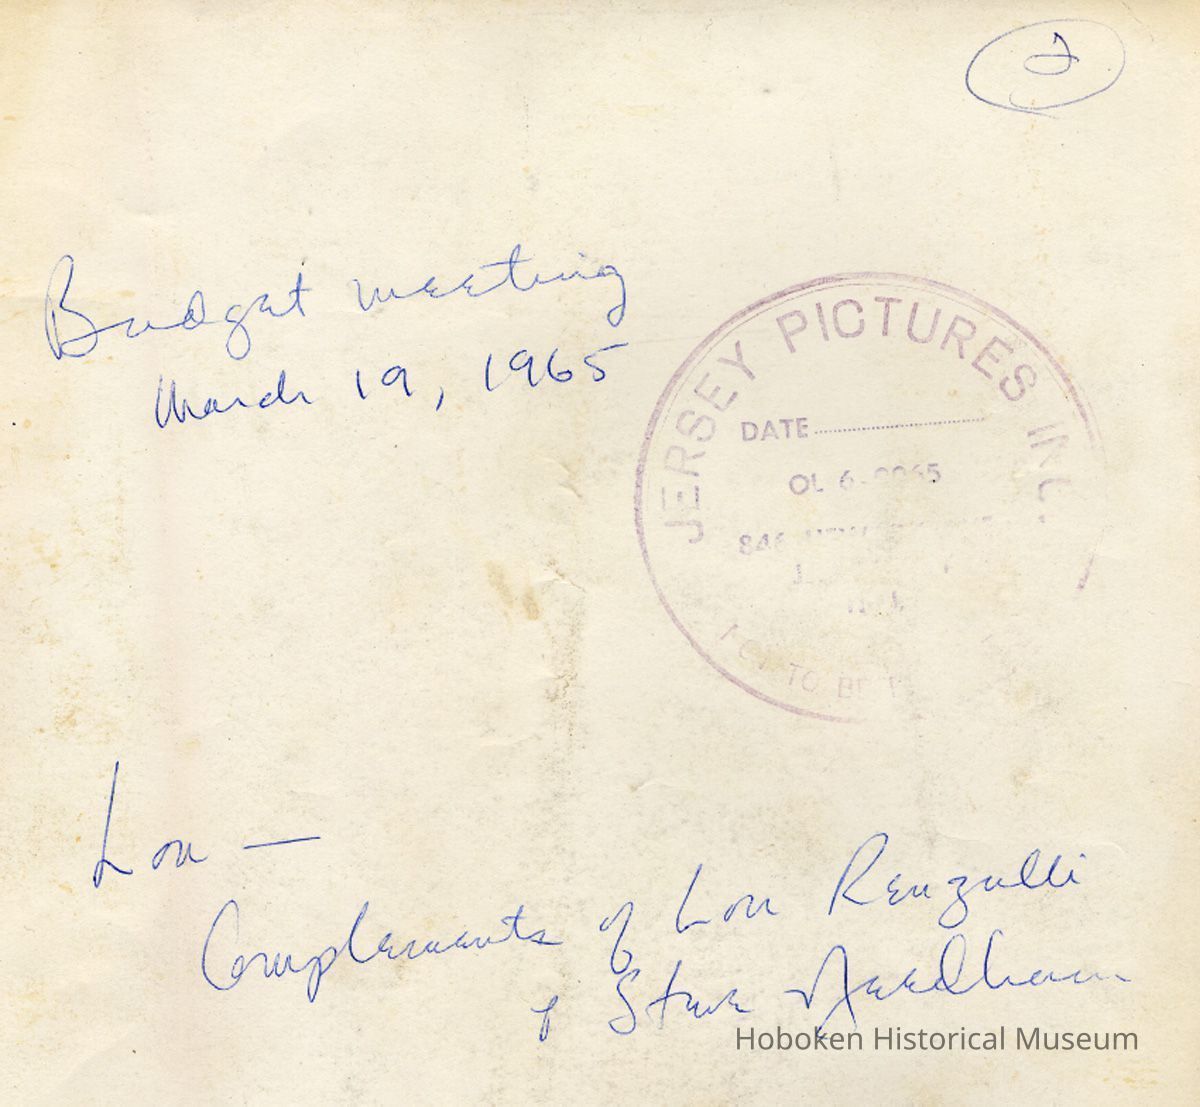 2
Budget meeting
March 19, 1965
JERSEY PICTURES INC.
DATE
OL 6-
846
TO BE
Lou —
Complements of Lou Renzulli
& Steve Needham
Hoboken Historical Museum